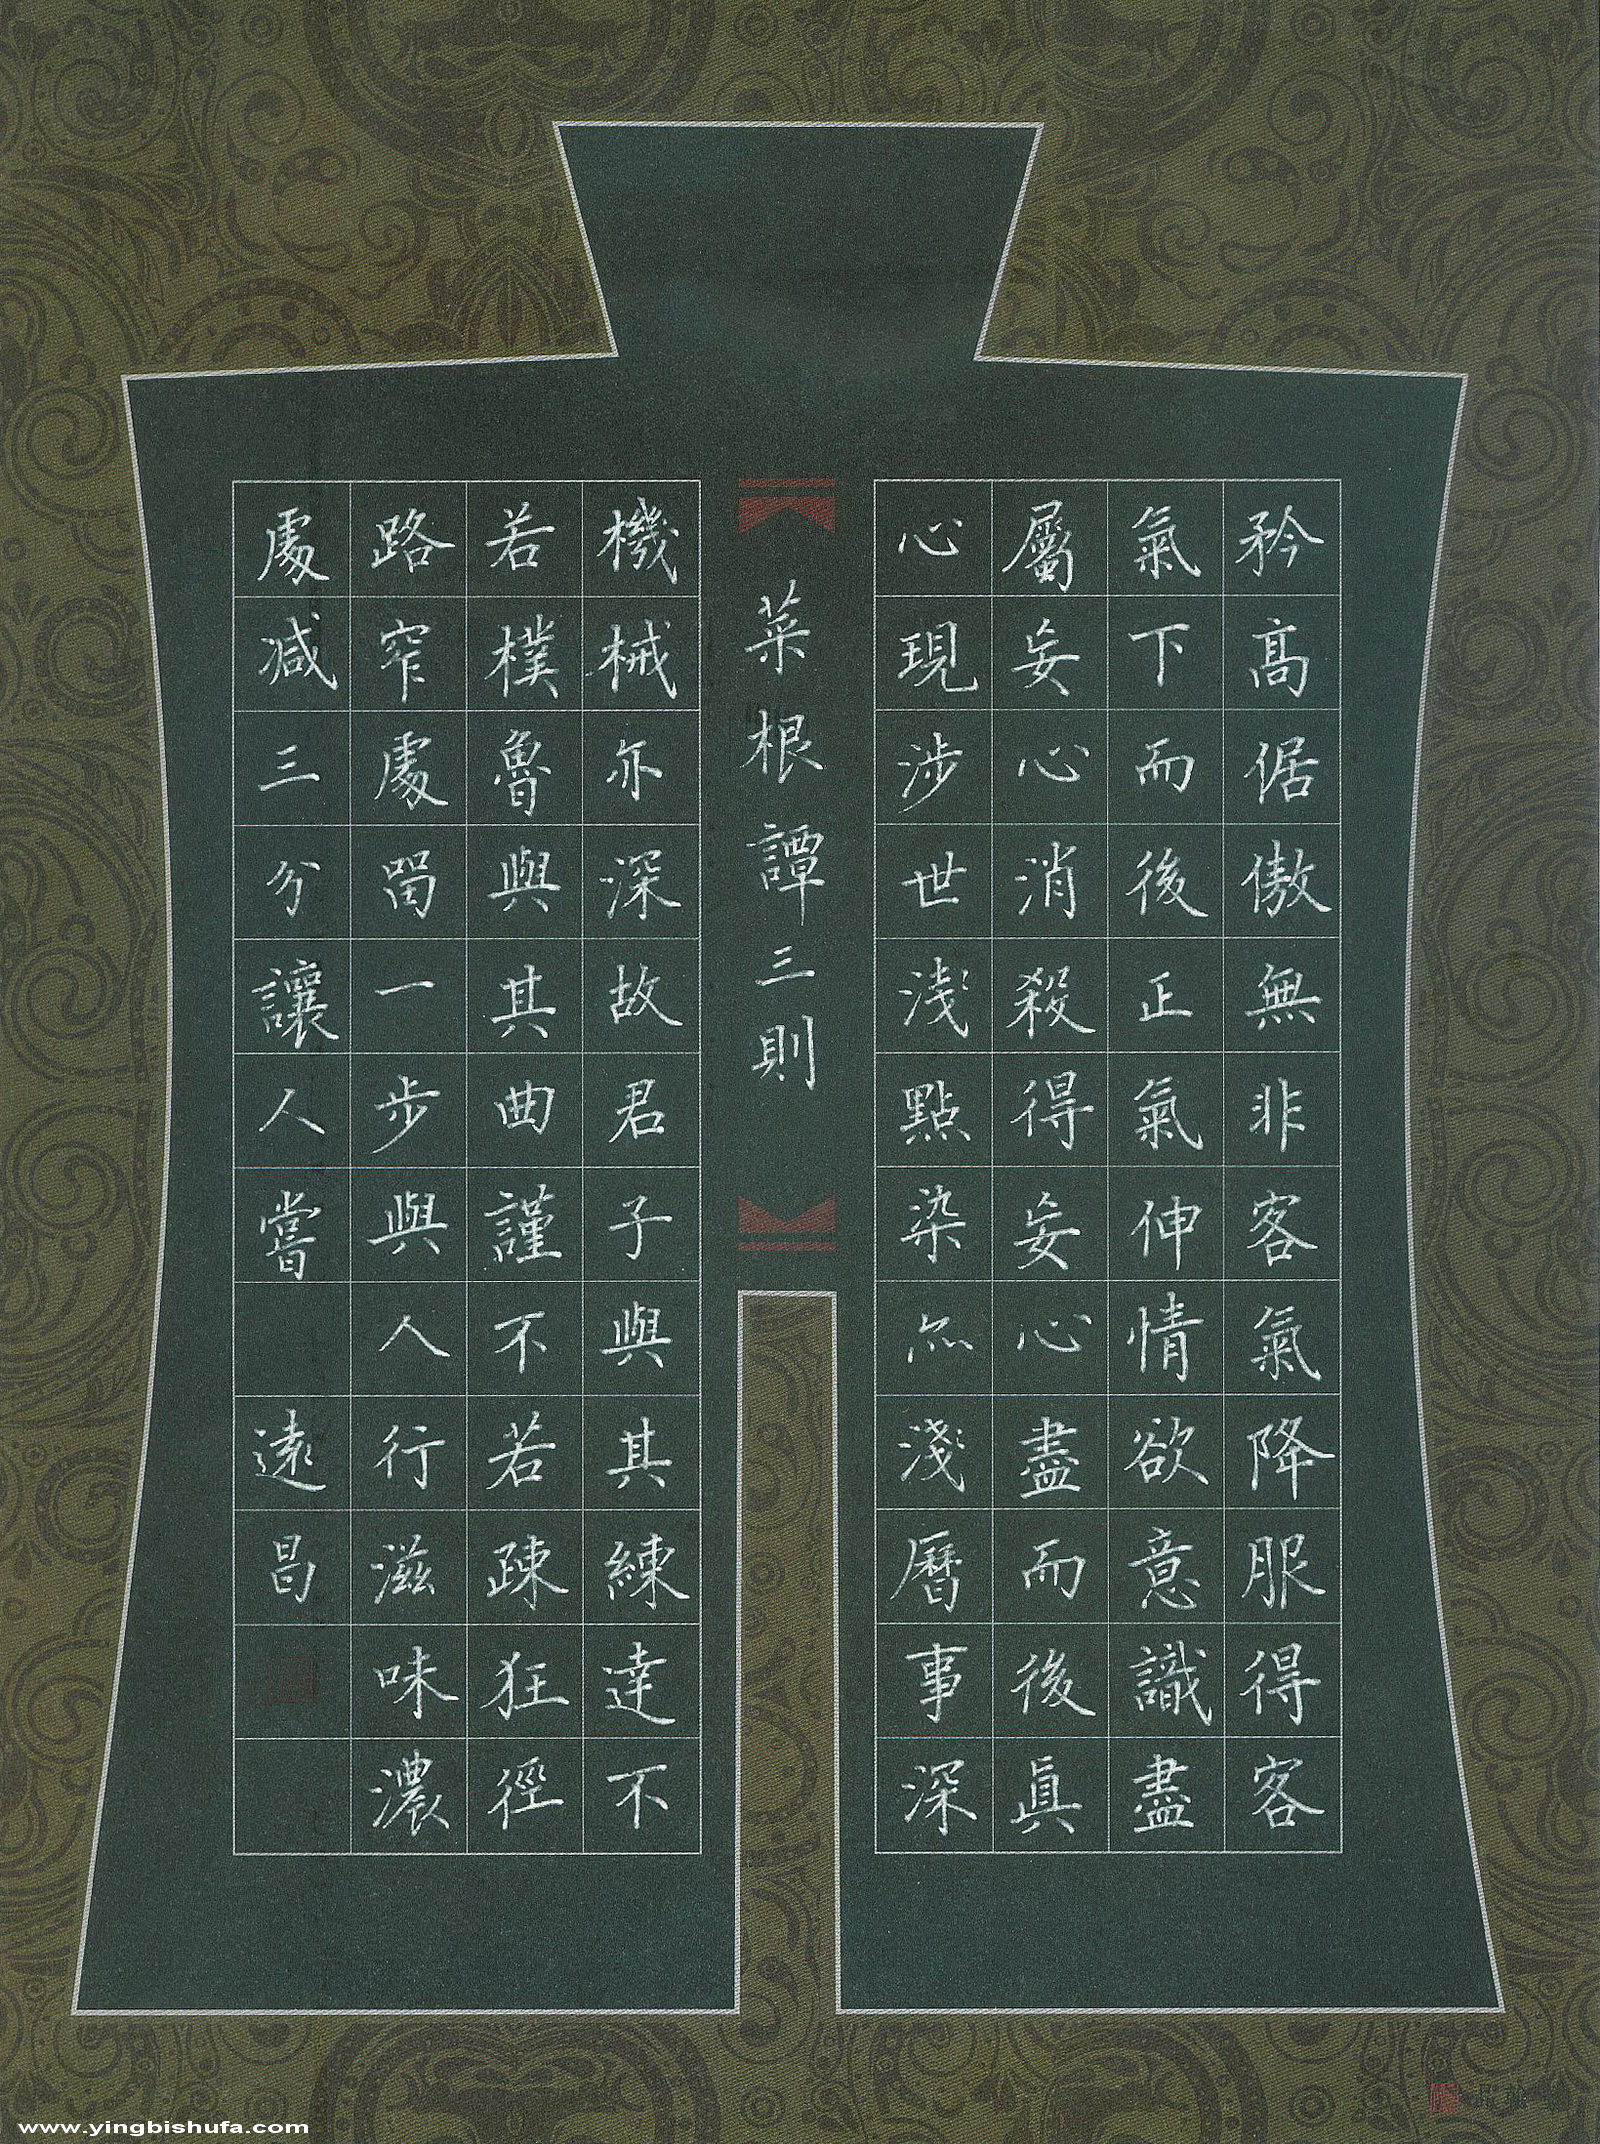 矜高倨傲無非客氣降服得客
氣下而後正氣伸情欲意識盡
屬妄心消殺得妄心盡而後眞
心現涉世淺點染亦淺曆事深
菜根譚三則
機械亦深故君子與其練達不
若樸魯與其曲謹不若疎狂徑
路窄處留一步與人行滋味濃
處减三分讓人嘗 遠昌
www.yingbishufa.com